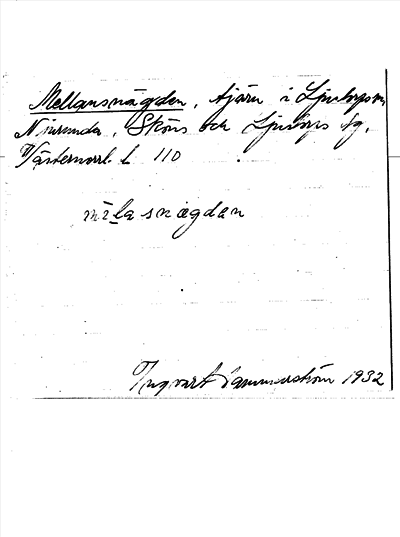 Mellansnägden, tjärn i Ljustorps sn,
Njurunda, Sköns och Ljustorps tg,
Västernorrl. l. 110
mèlasnægdan
Ingvart Hammarström 1932